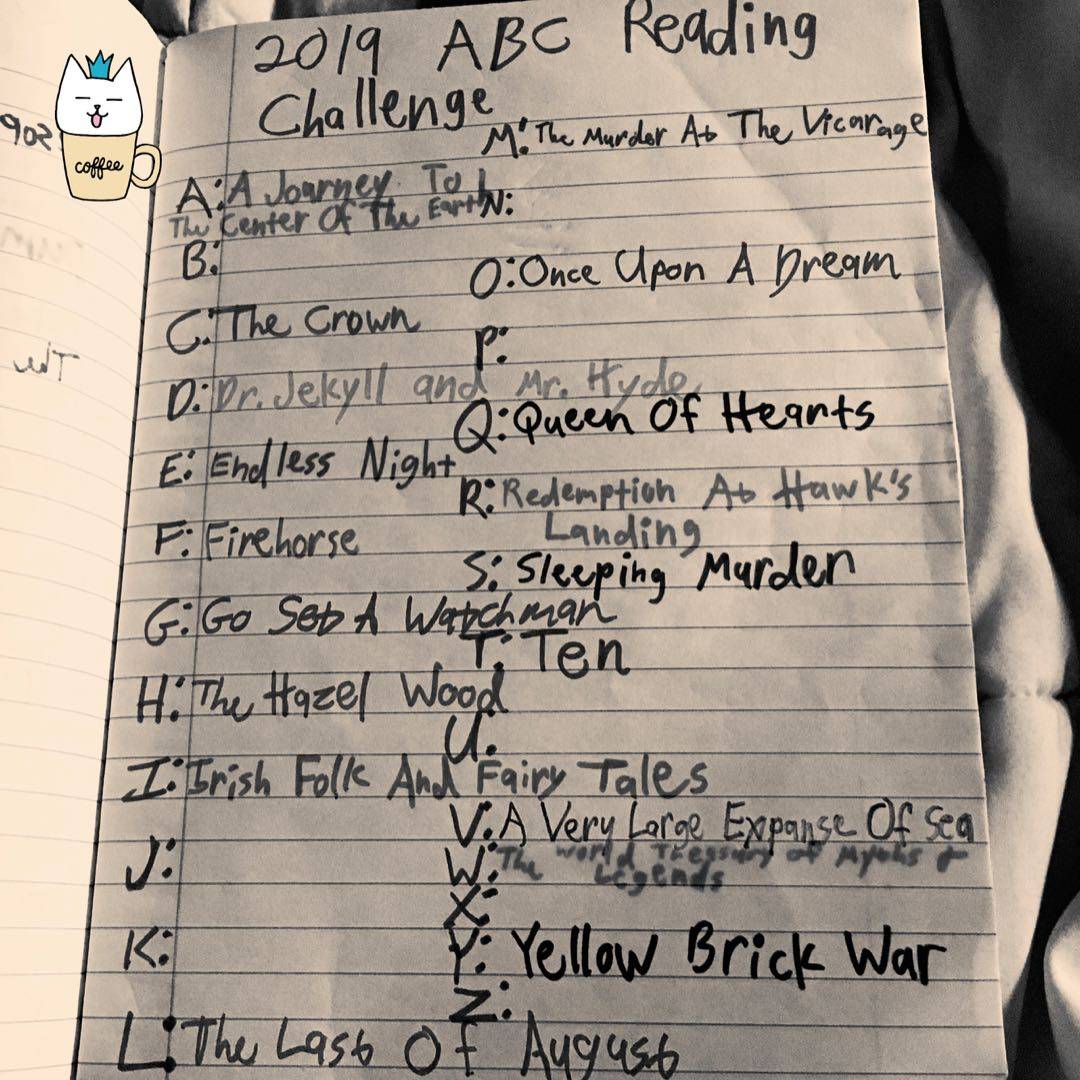 2019 ABC Reading
Challenge
coffee
A: A Journey To
The Center Of The Earth
B:
C: The Crown
D: Dr. Jekyll and Mr. Hyde
E: Endless Night
F: Firehorse
G: Go Set A Watchman
H: The Hazel Wood
I: Irish Folk And Fairy Tales
J:
K:
L: The Last Of August
M: The Murder At The Vicarage
N:
O: Once Upon A Dream
P:
Q: Queen Of Hearts
R: Redemption At Hawk's
Landing
S: Sleeping Murder
T: Ten
U:
V: A Very Large Expanse Of Sea
W: The World Treasury of Myths &
Legends
X:
Y: Yellow Brick War
Z: